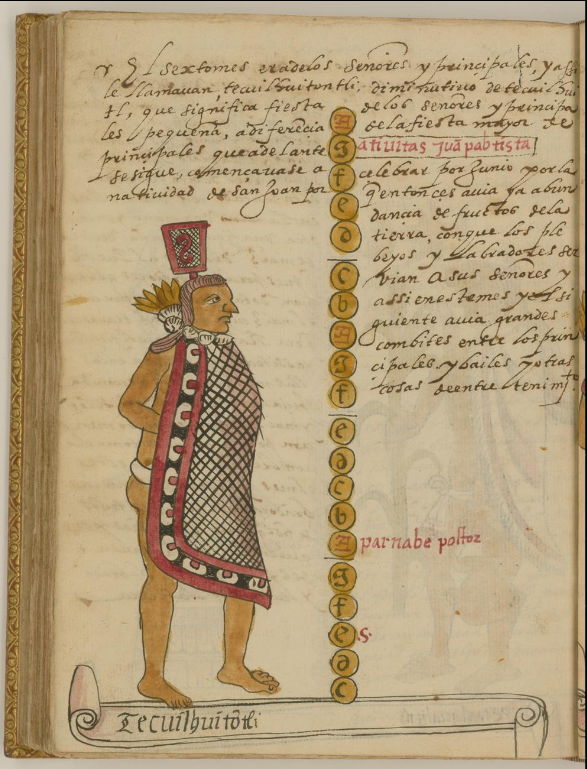 Y El sexto mes era de los Señores y principales, y assi
le llamavan, tecuilhuitontli, diminutivo de tecuilhui
tl, que significa fiesta de los señores y principa
les pequeña, a diferencia de la fiesta mayor de
principales que adelante
se sigue, comencavase a
natividad de san Juan por
atiuitas juā pabtista
celebrar por Junio y por la
q̄ entonces avia ya abun
dancia de fructos de la
tierra, con que los ple
beyos y labradores ser
vian a sus señores y
assi en este mes y el si
guiente avia grandes
combites entre los prin
cipales, y bailes y otras
cosas de entretenimto
A
g
f
e
d
c
b
A
g
f
e
d
c
b
A
parnabe postoz
g
f
e
s.
d
c
Tecuilhuitōtli